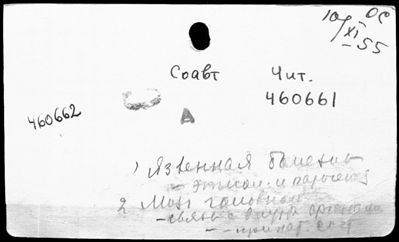 10/XI-55 ОС
Соавт Чит.
460661
460662
А
1) Язвенная болезнь
- этиол. и патоген
2 Мозг головной
- связь с внутр органами